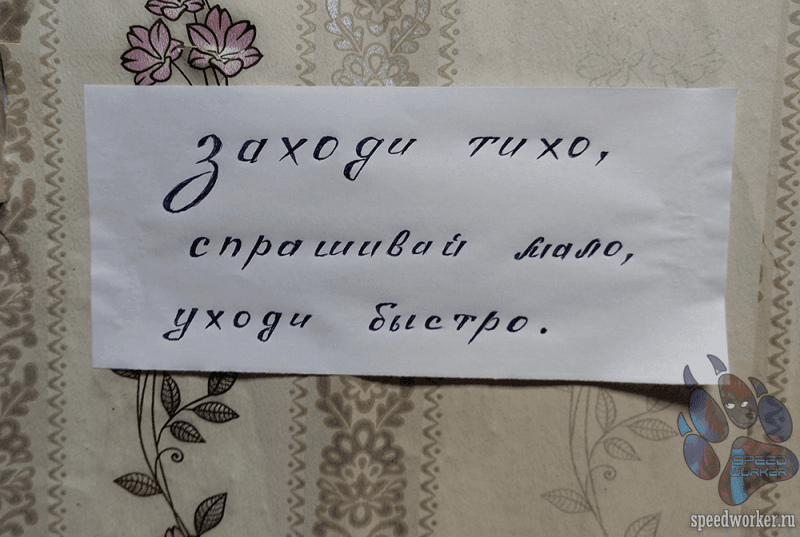 Заходи тихо,
спрашивай мало,
уходи быстро.
SPEED
WORKER
speedworker.ru